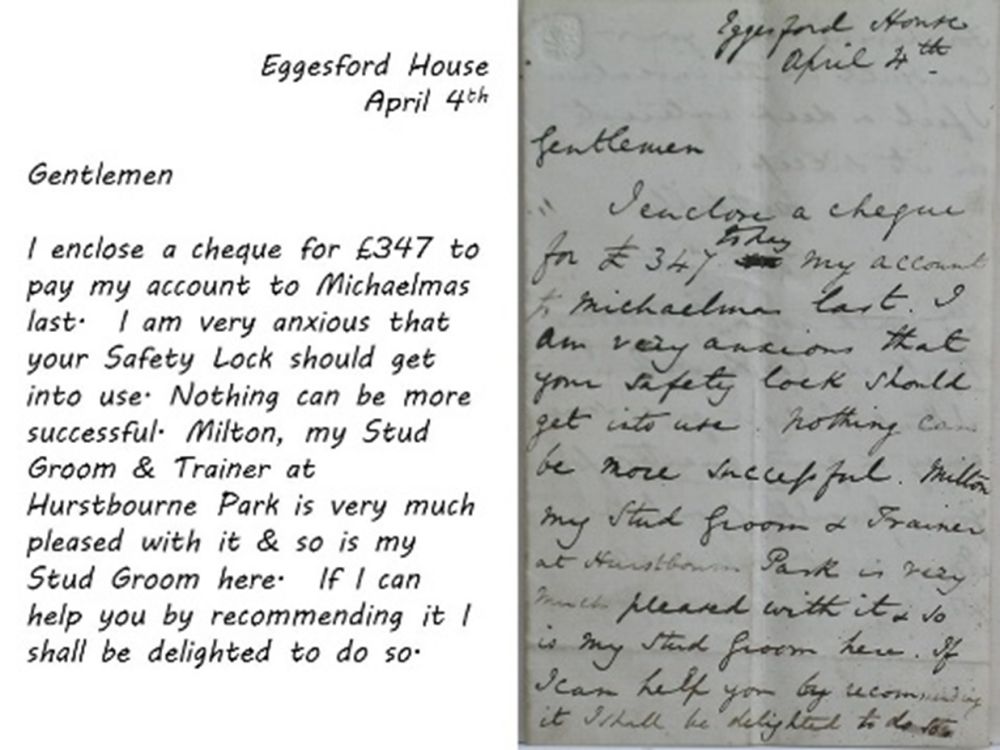 Eggesford House
April 4th
Gentlemen
I enclose a cheque for £347 to
pay my account to Michaelmas
last. I am very anxious that
your Safety Lock should get
into use. Nothing can be more
successful. Milton, my Stud
Groom & Trainer at
Hurstbourne Park is very much
pleased with it & so is my
Stud Groom here. If I can
help you by recommending it I
shall be delighted to do so.
Eggesford House
April 4th
Gentlemen
I enclose a cheque
to pay
for £347 my account
to Michaelmas last. I
am very anxious that
your safety lock should
get into use. Nothing can
be more successful. Milton
my Stud Groom & Trainer
at Hurstbourne Park is very
much pleased with it & so
is my Stud Groom here. If
I can help you by recommending
it I shall be delighted to do so